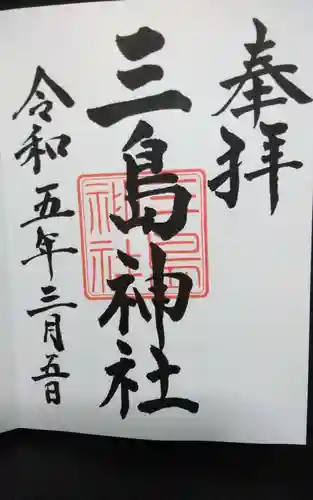 奉拝
三島神社
令和五年三月五日
三島神社